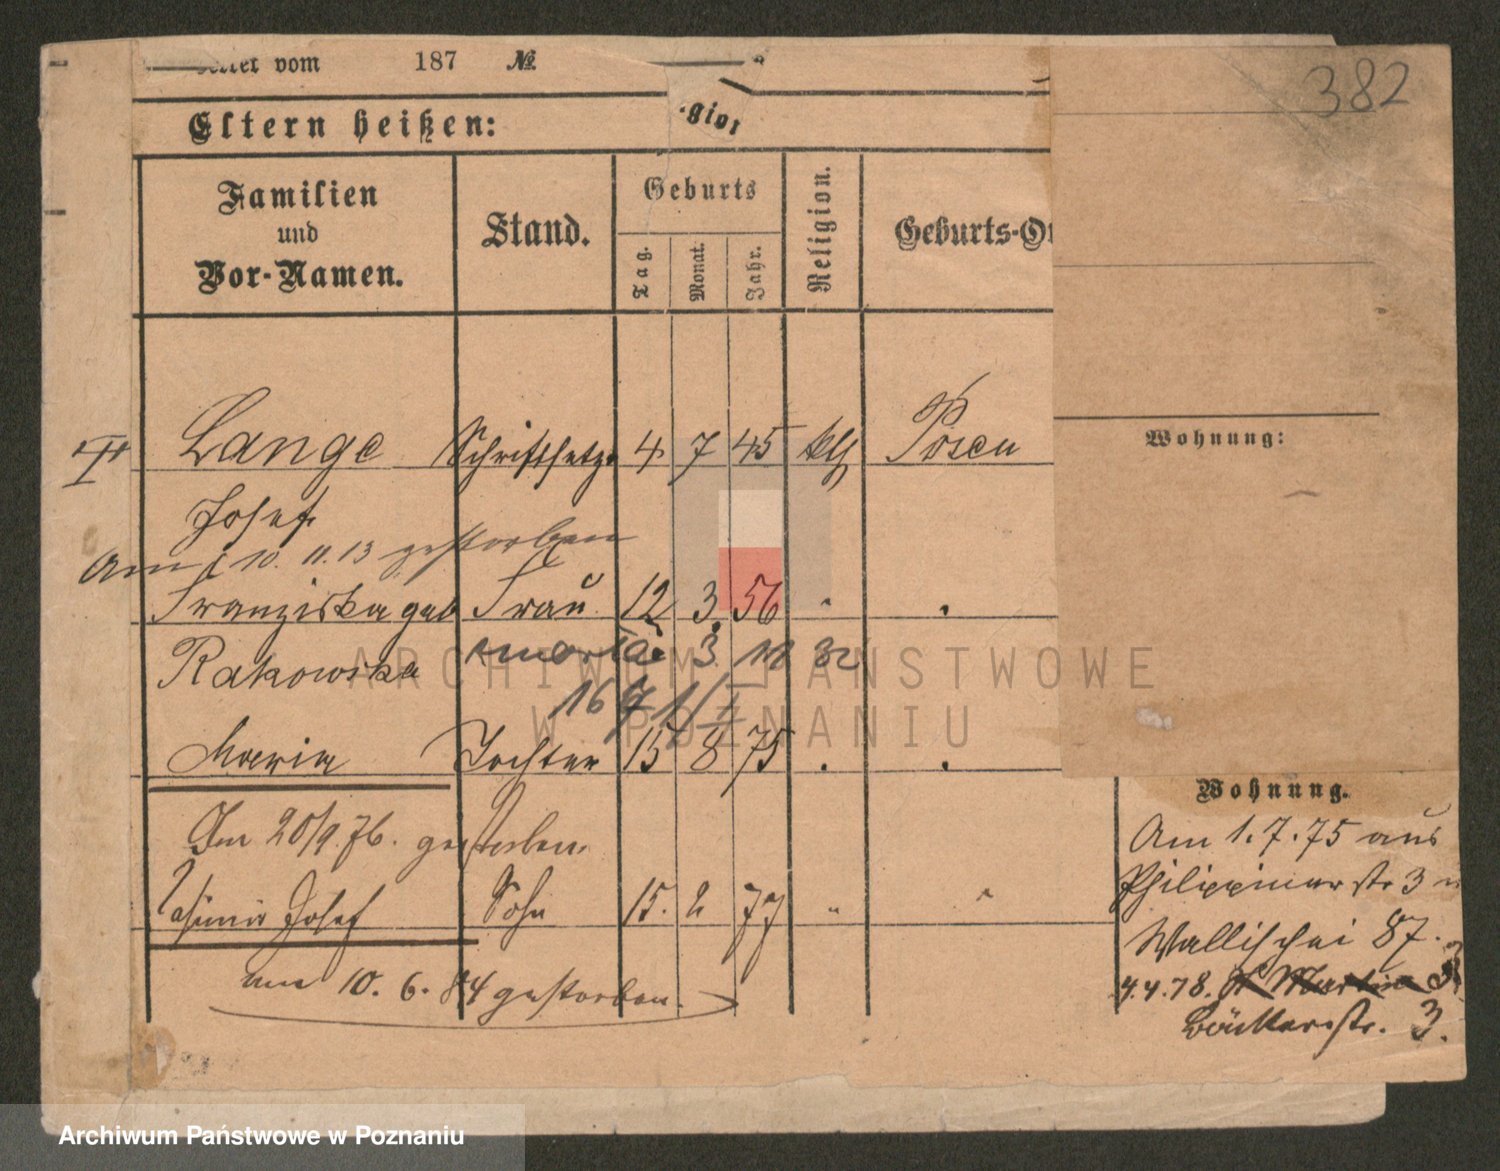 vom 187 №
382
Eltern heißen:
Familien
und
Vor-Namen.
Stand.
Geburts
Tag.
Monat.
Jahr.
Religion.
Geburts-Or
Wohnung:
Lange Schriftsetz. 4 7 45 kth Posen
Josef
am 10. 11. 13 gestorben
Franziska geb Frau 12 3. 56 " "
Rakowska zmarła 3 11 32
16
Maria Tochter 15 8 75 " "
Am 20/9.76. gestorben.
Casimir Josef Sohn 15. 2 77 " "
am 10. 6. 84 gestorben.
Wohnung.
Am 1.7.75 aus
Philippinerstr 3 n
Wallischei 87.
4.4.78. St Martin
Bäckerstr. 3.
ARCHIWUM PAŃSTWOWE
W POZNANIU
Archiwum Państwowe w Poznaniu